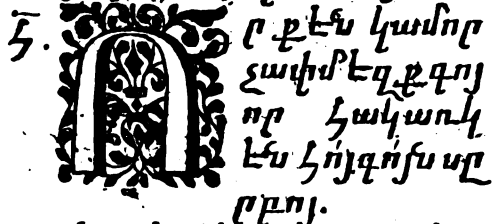 Հ. Որ քէն կամոր
չափ մեզք գոյ
որ հակառկ
էն հոյգուն սը
րբոյ.